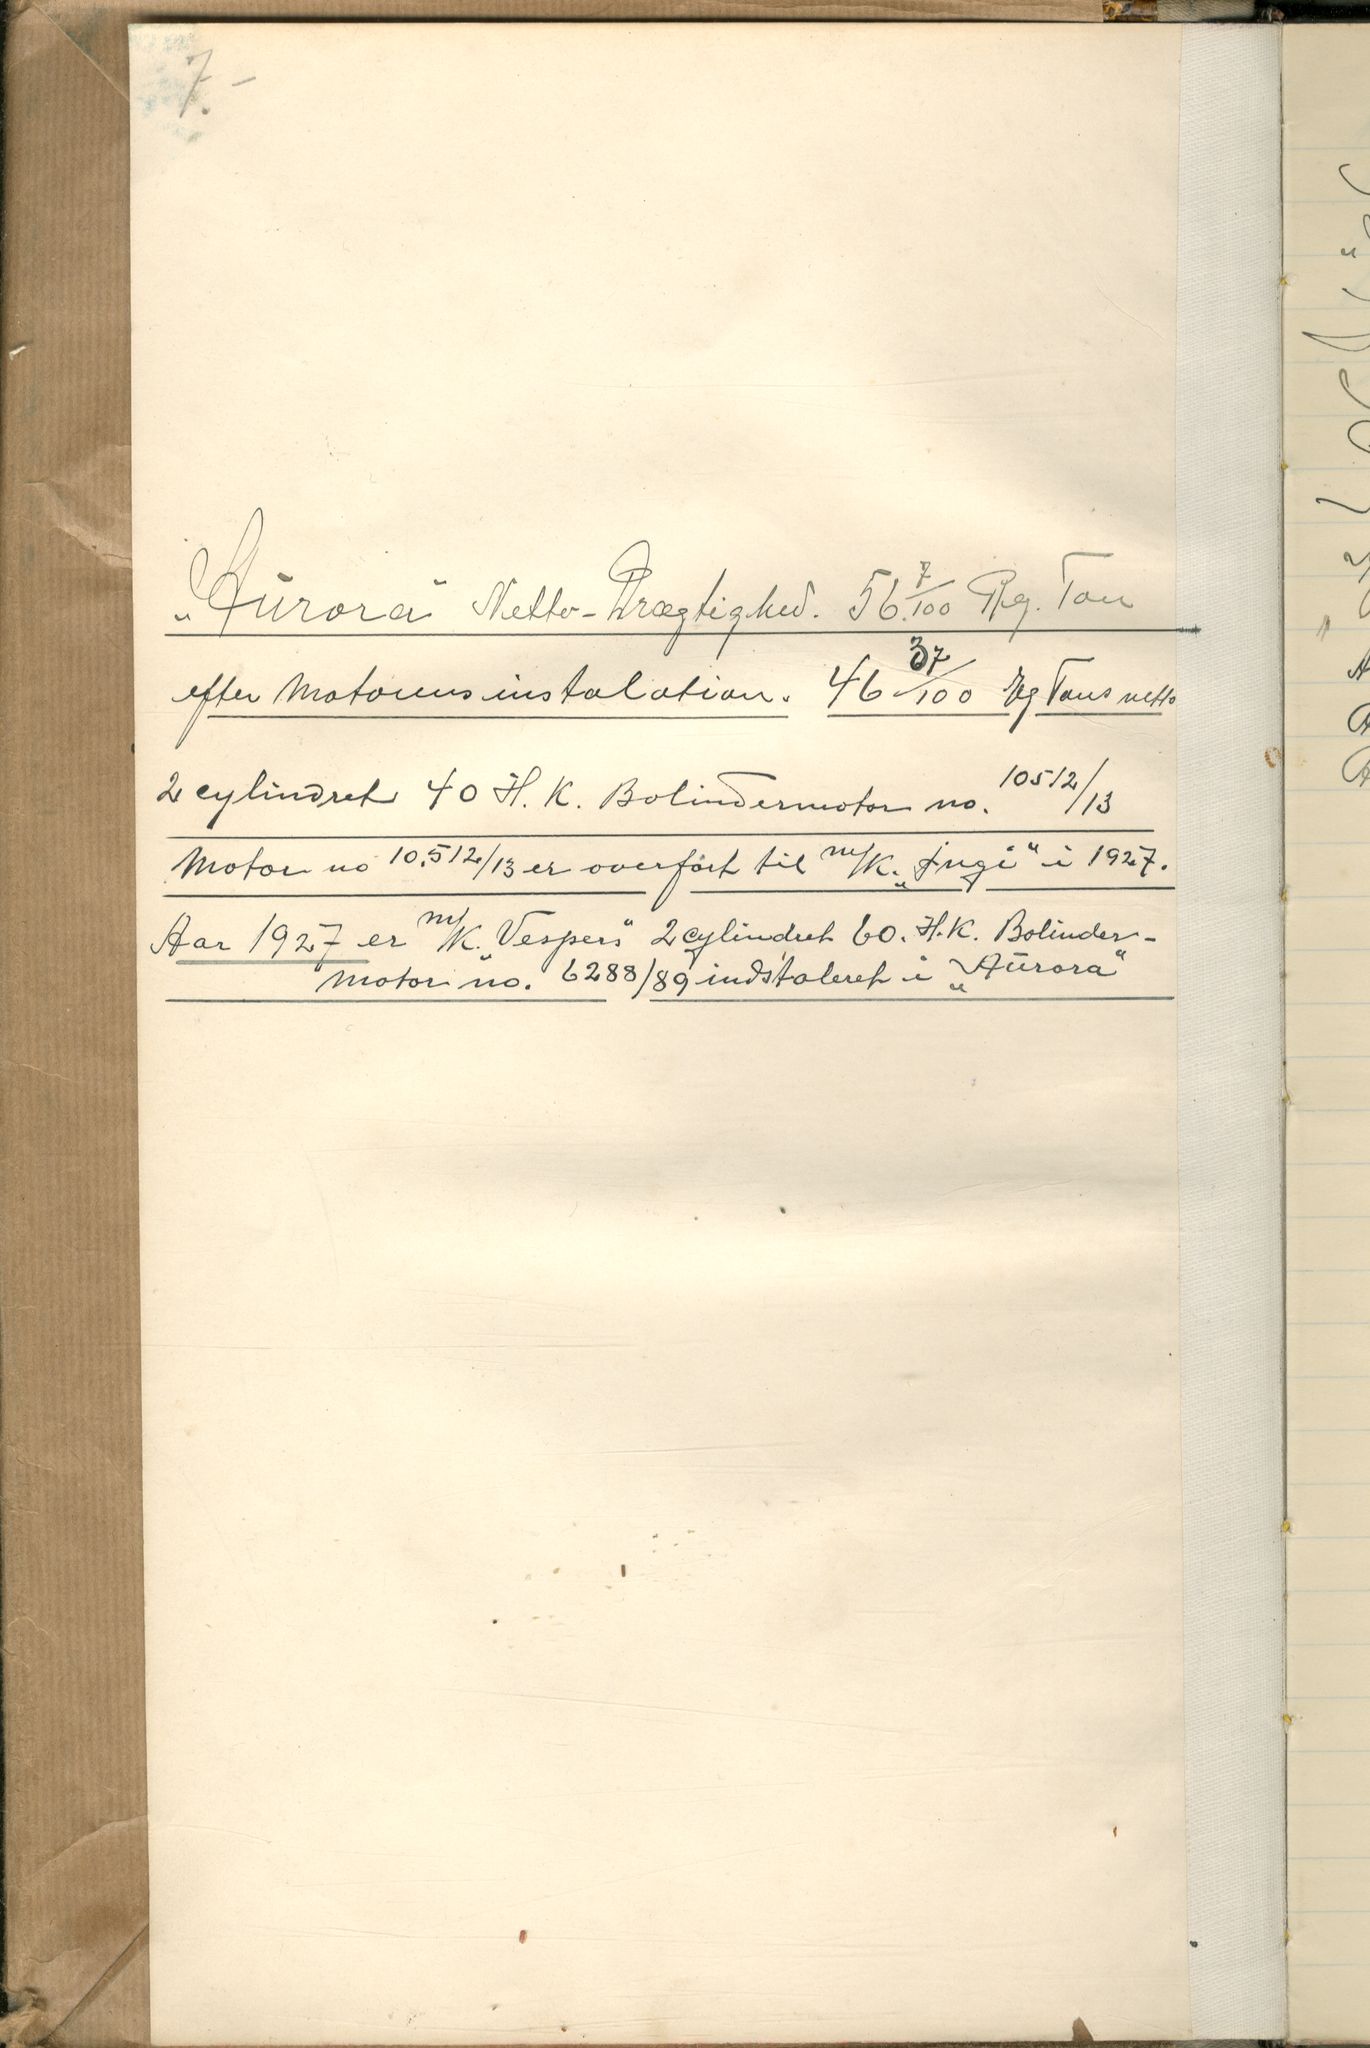 7.-
„Aurora" Netto-Drægtighed. 56.7/100 Rg. Ton
efter Motorens instalation. 46 37/100 Rg Tons netto
2 cylindret 40 H.K. Bolindermotor no. 10512/13
Motor no 10.512/13 er overført til m/K. „Ingi" i 1927.
Aar 1927 er m/K. „Vespers" 2 cylindret 60. H.K. Bolinder-
motor no. 6288/89 indstaleret i „Aurora"